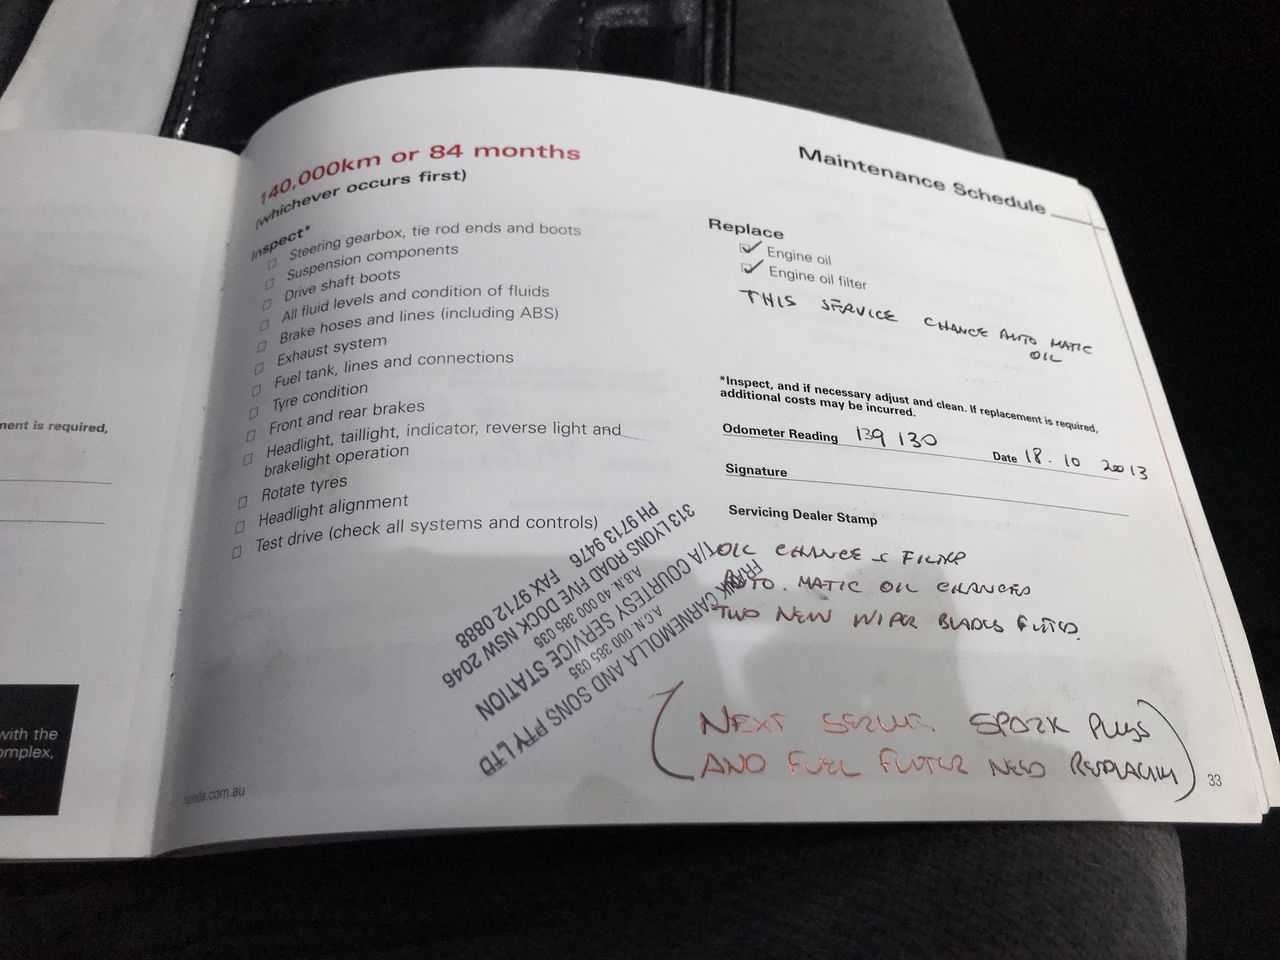 ment is required,
with the
omplex,
140,000km or 84 months
(whichever occurs first)
Inspect*
Steering gearbox, tie rod ends and boots
Suspension components
Drive shaft boots
All fluid levels and condition of fluids
Brake hoses and lines (including ABS)
Exhaust system
Fuel tank, lines and connections
Tyre condition
Front and rear brakes
Headlight, taillight, indicator, reverse light and
brakelight operation
Rotate tyres
Headlight alignment
Test drive (check all systems and controls)
onda.com.au
Maintenance Schedule
Replace
Engine oil
Engine oil filter
THIS SERVICE CHANGE AUTO MATIC
OIL
*Inspect, and if necessary adjust and clean. If replacement is required,
additional costs may be incurred.
Odometer Reading 139 130
Date 18.10 2013
Signature
Servicing Dealer Stamp
OIL CHANGE & FILTER
AUTO.MATIC OIL CHANGED
TWO NEW WIPER BLADES FITTED.
(NEXT SERVICE SPARK PLUGS
AND FUEL FILTER NEED REPLACING)
33
FRANK CARNEMOLLA AND SONS PTY LTD
A.C.N. 000 385 035
T/A COURTESY SERVICE STATION
A.B.N. 40 000 385 035
313 LYONS ROAD FIVE DOCK NSW 2046
PH 9713 9476 FAX 9712 0888